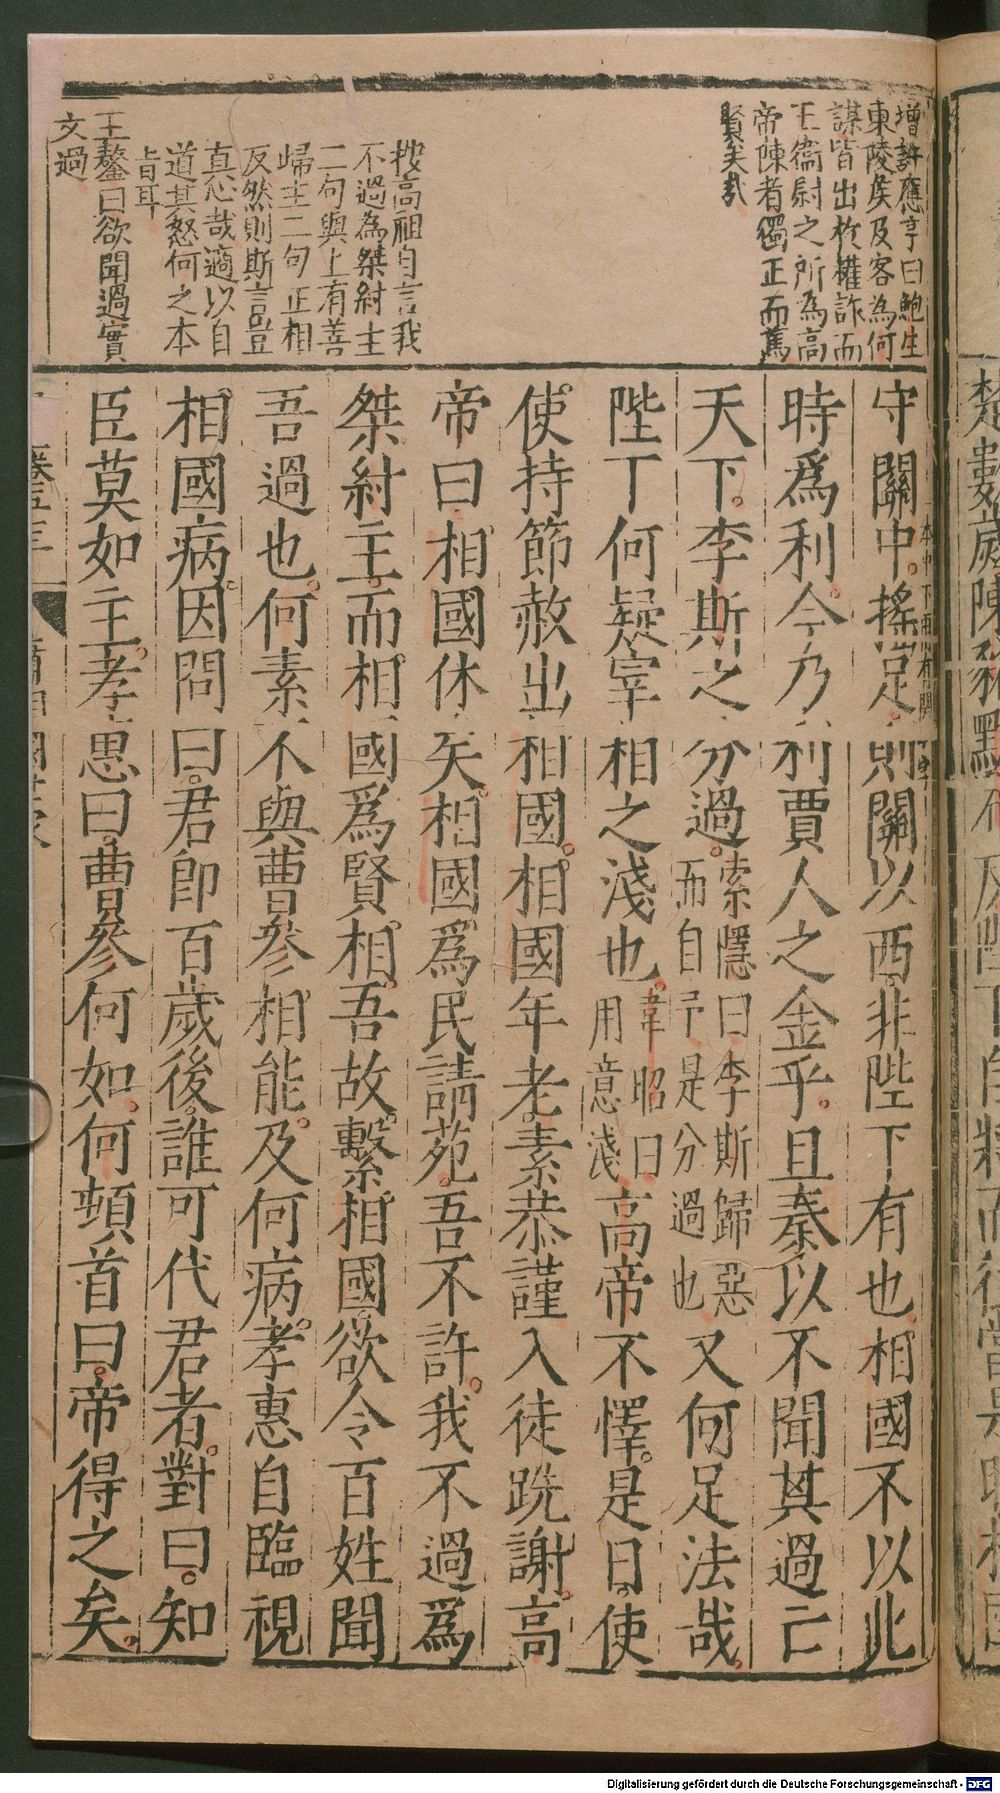 增許應亨曰鮑生
東陵矦及客為何
謀皆出於權詐而
王衞尉之所為高
帝陳者獨正而篤
賢矣哉
按高祖自言我
不過為桀紂主
二句與上有善
歸主二句正相
反然則斯言豈
真心哉適以自
道其怒何之本
旨耳
王鏊曰欲聞過實
文過
守關中搖足則關以西非陛下有也相國不以此
時爲利今乃利賈人之金乎且秦以不聞其過亡
天下李斯之分過
索隱曰李斯歸惡
而自予是分過也
又何足法哉
陛下何疑宰相之淺也
韋昭曰
用意淺
高帝不懌是日使
使持節赦出相國相國年老素恭謹入徒跣謝高
帝曰相國休矣相國爲民請苑吾不許我不過爲
桀紂主而相國爲賢相吾故繫相國欲令百姓聞
吾過也何素不與曹參相能及何病孝惠自臨視
相國病因問曰君即百歲後誰可代君者對曰知
臣莫如主孝惠曰曹參何如何頓首曰帝得之矣
Digitalisierung gefördert durch die Deutsche Forschungsgemeinschaft - DFG